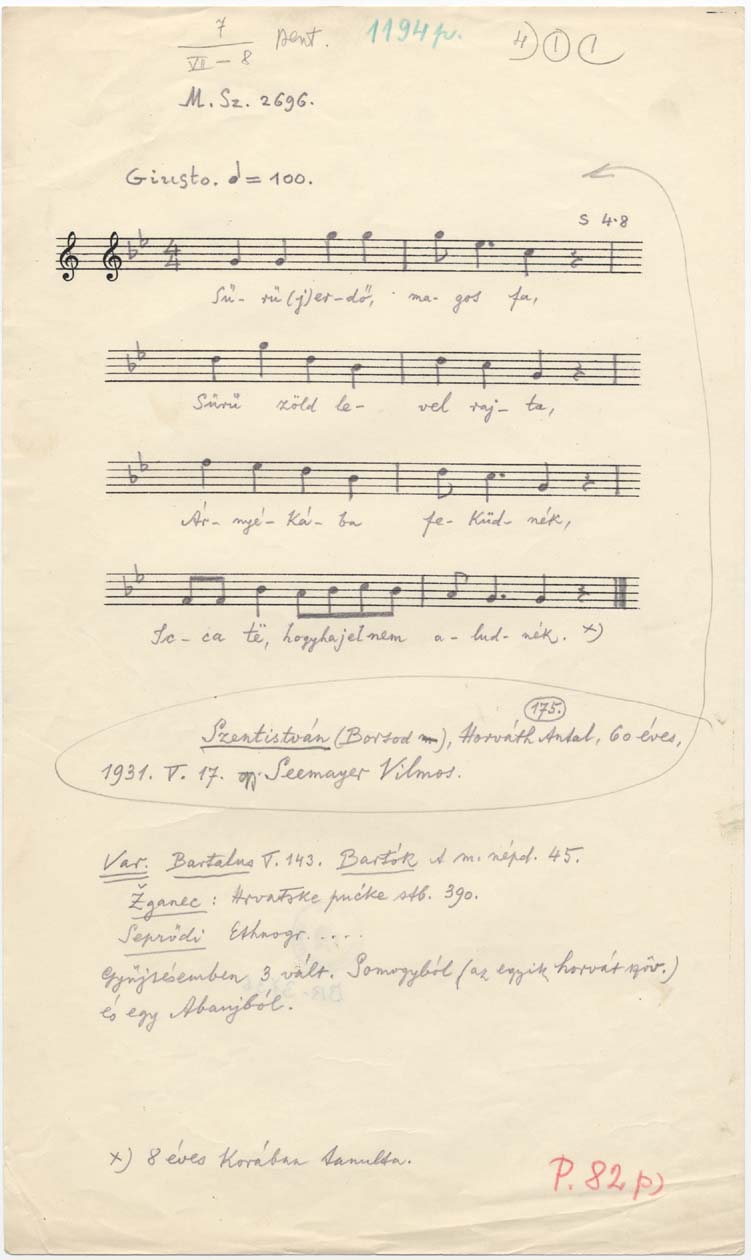 7
VII - 8 pent. 1194p. 4) 1 1
M. Sz. 2696.
Giusto. = 100.
S 4.8
4
4
Sű- rü (j)er-dő, ma- gos fa,
Sűrű zöld le- vel raj- ta,
Ár- nyé- ká- ba fe- küd- nék,
Ic- ca të, hogyha jel nem a- lud- nék. x)
175.
Szentistván (Borsod m), Horváth Antal, 60 éves,
1931. V. 17. Seemayer Vilmos.
Var. Bartalus V. 143. Bartók A m. népd. 45.
Žganec : Hrvatske pučke stb. 390.
Seprődi Ethnogr. ....
Gyűjtésemben 3 vált. Somogyból (az egyik horvát szöv.)
és egy Abaujból.
x) 8 éves korában tanulta.
P. 82 p)